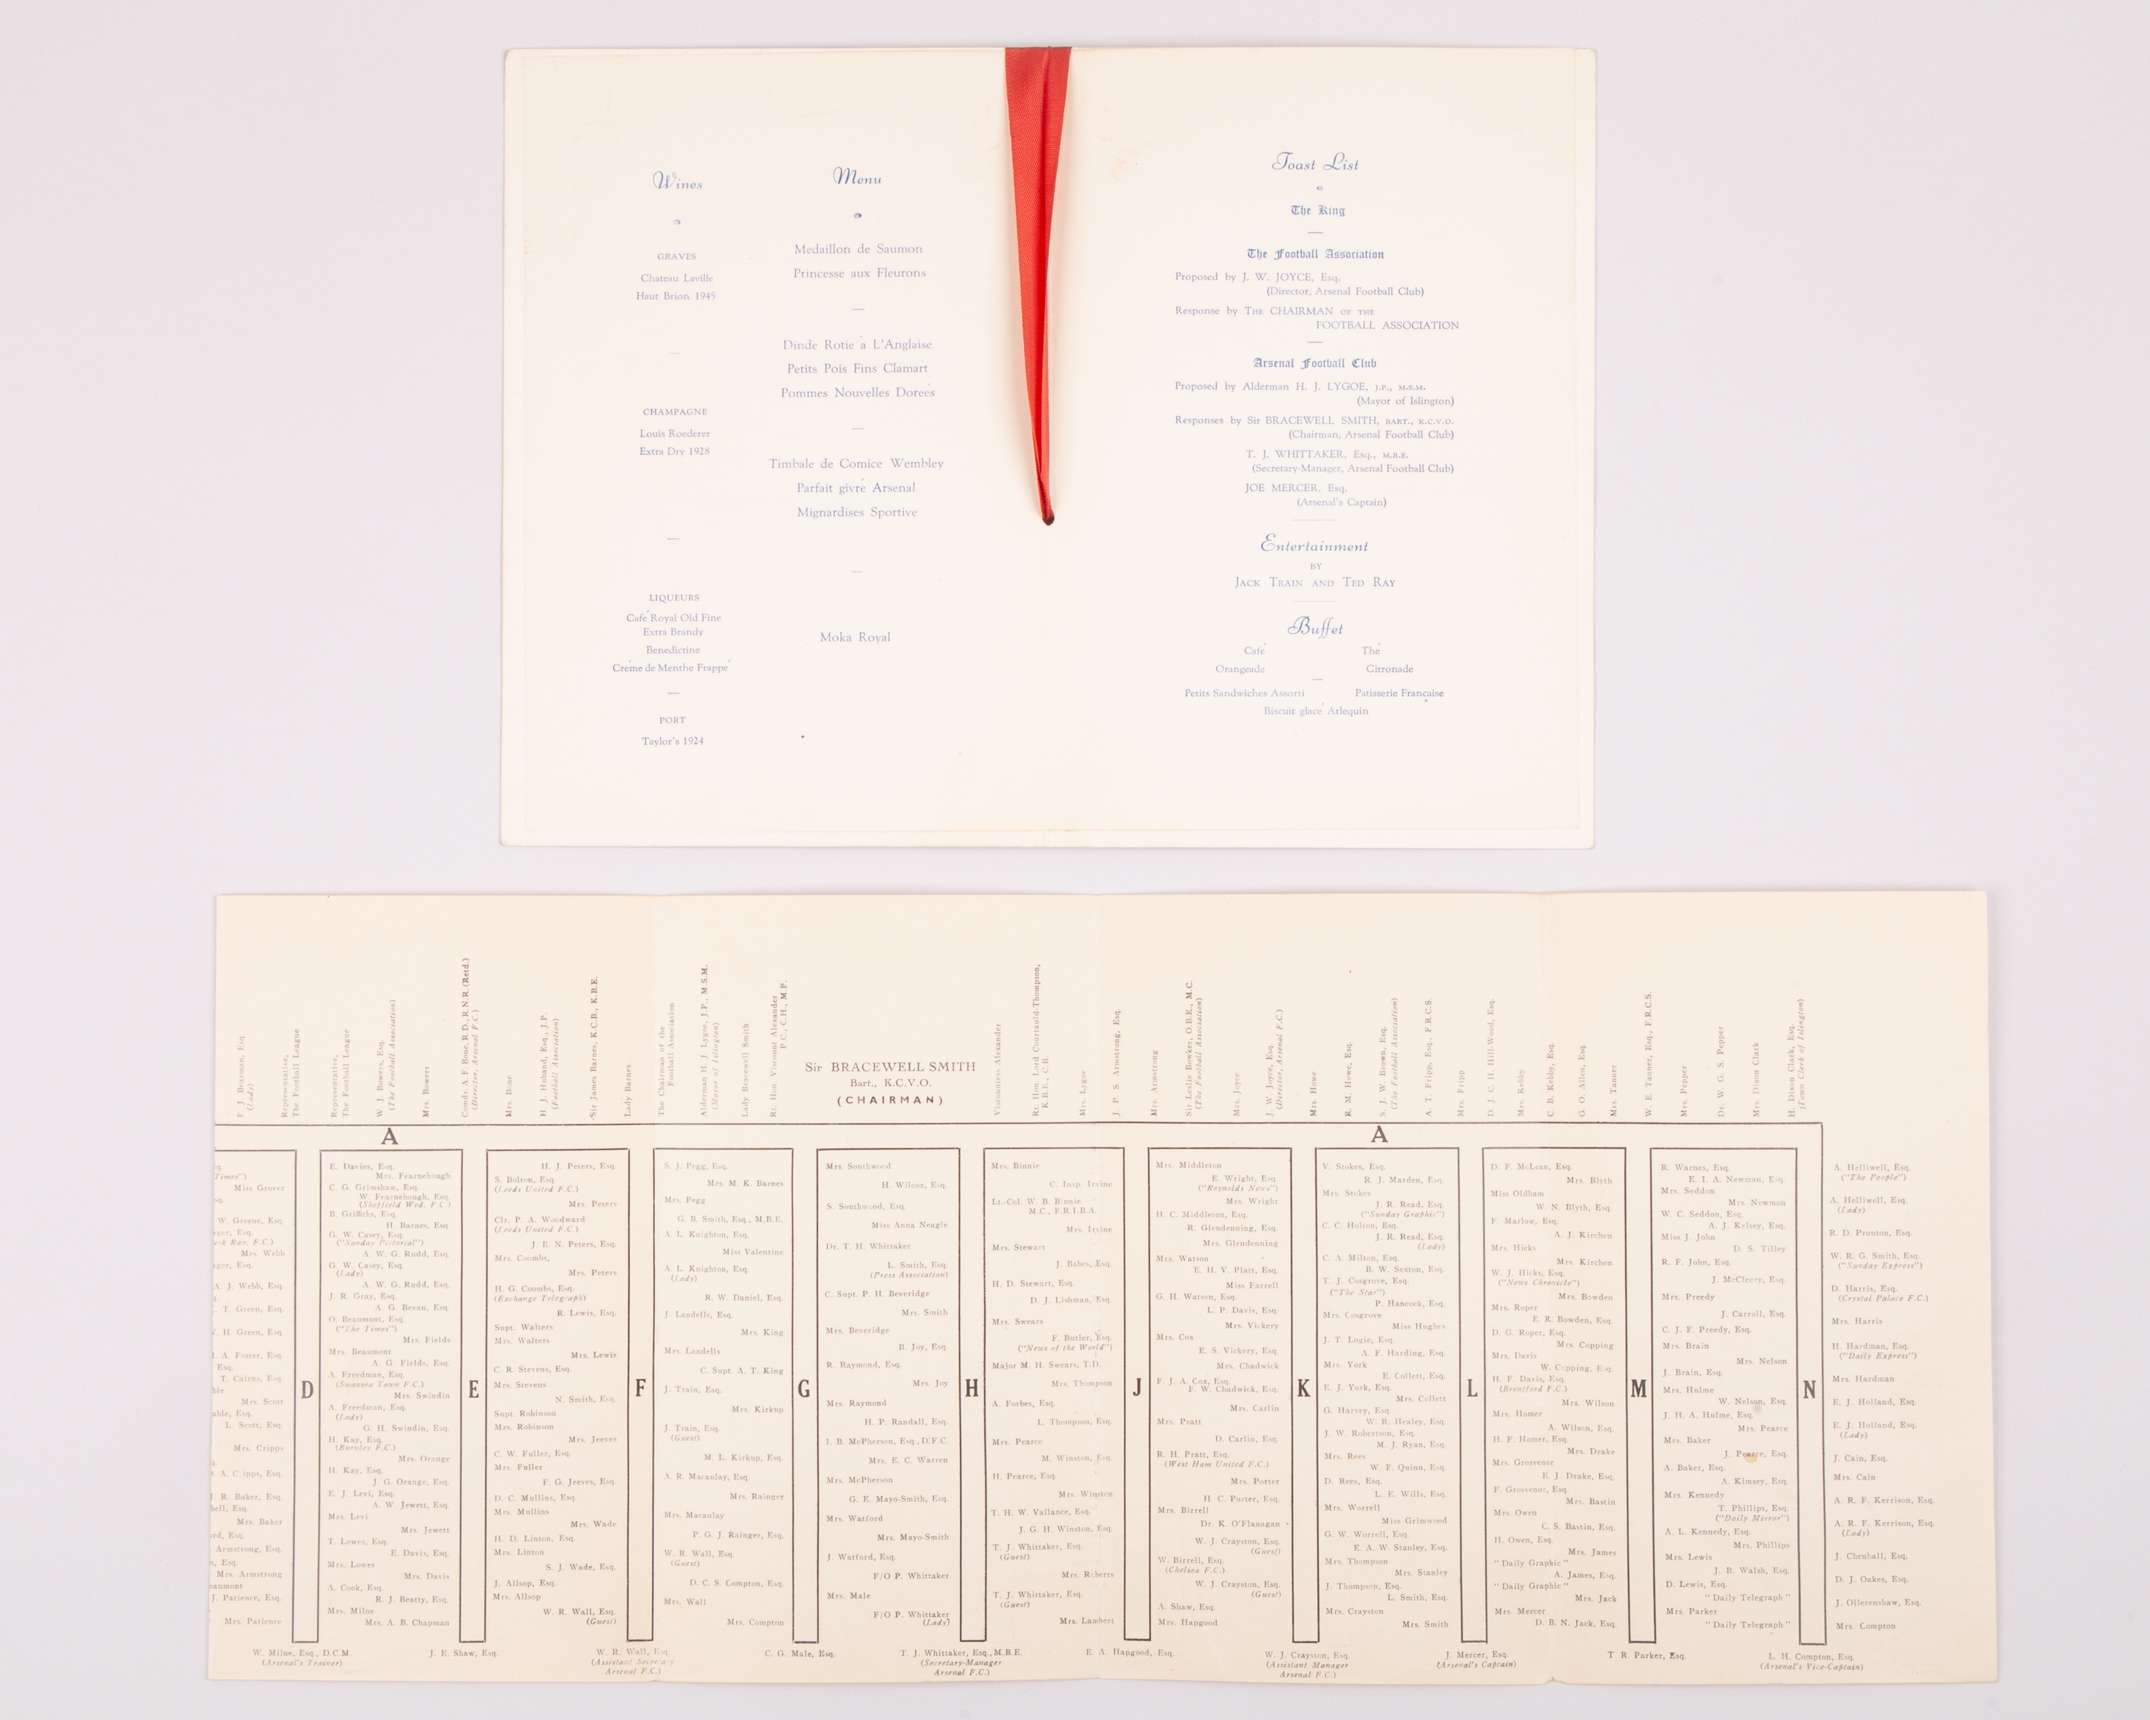 Wines
GRAVES
Chateau Laville
Haut Brion 1945
CHAMPAGNE
Louis Roederer
Extra Dry 1928
LIQUEURS
Café Royal Old Fine
Extra Brandy
Benedictine
Créme de Menthe Frappé
PORT
Taylor's 1924
Menu
Medaillon de Saumon
Princesse aux Fleurons
Dinde Rotie a L'Anglaise
Petits Pois Fins Clamart
Pommes Nouvelles Doreés
Timbale de Comice Wembley
Parfait givré Arsenal
Mignardises Sportive
Moka Royal
Toast List
The King
The Football Association
Proposed by J. W. JOYCE, Esq.
(Director, Arsenal Football Club)
Response by THE CHAIRMAN OF THE
FOOTBALL ASSOCIATION
Arsenal Football Club
Proposed by Alderman H. J. LYGOE, J.P., M.S.M.
(Mayor of Islington)
Responses by Sir BRACEWELL SMITH, BART., K.C.V.O.
(Chairman, Arsenal Football Club)
T. J. WHITTAKER, Esq., M.B.E.
(Secretary-Manager, Arsenal Football Club)
JOE MERCER, Esq.
(Arsenal's Captain)
Entertainment
BY
JACK TRAIN AND TED RAY
Buffet
Café Thé
Orangeade Citronade
Petits Sandwiches Assorti Patisserie Française
Biscuit glacé Arlequin
F. J. Dearman, Esq.
(Lady)
Representative,
The Football League
Representative,
The Football League
W. J. Bowers, Esq.
(The Football Association)
Mrs. Bowers
Comdr. A. F. Bone, R.D., R.N.R. (Retd.)
(Director, Arsenal F.C.)
Mrs. Bone
H. J. Huband, Esq., J.P.
(Football Association)
Sir James Barnes, K.C.B., K.B.E.
Lady Barnes
The Chairman of the
Football Association
Alderman H. J. Lygoe, J.P., M.S.M.
(Mayor of Islington)
Lady Bracewell Smith
Rt. Hon. Viscount Alexander
P.C., C.H., M.P.
Sir BRACEWELL SMITH
Bart., K.C.V.O.
(CHAIRMAN)
Viscountess Alexander
Rt. Hon. Lord Courtauld-Thompson,
K.B.E., C.B.
Mrs. Lygoe
J. P. S. Armstrong, Esq.
Mrs. Armstrong
Sir Leslie Bowker, O.B.E., M.C.
(The Football Association)
Mrs. Joyce
J. W. Joyce, Esq.
(Director, Arsenal F.C.)
Mrs. Howe
R. M. Howe, Esq.
S. J. W. Brown, Esq.
(The Football Association)
A. T. Fripp, Esq., F.R.C.S.
Mrs. Fripp
D. J. C. H. Hill-Wood, Esq.
Mrs. Kebby
C. B. Kebby, Esq.
G. O. Allen, Esq.
Mrs. Tanner
W. E. Tanner, Esq., F.R.C.S.
Mrs. Pepper
Dr. W. G. S. Pepper
Mrs. Dixon Clark
H. Dixon Clark, Esq.
(Town Clerk of Islington)
A
A
Miss Grover
W. Greene, Esq.
Mrs. Webb
A. J. Webb, Esq.
T. Green, Esq.
H. Green, Esq.
A. Foster, Esq.
Esq.
T. Cairns, Esq.
Mrs. Scott
L. Scott, Esq.
Mrs. Cripps
A. Cripps, Esq.
J. R. Baker, Esq.
Mrs. Baker
Armstrong, Esq.
Mrs. Armstrong
J. Patience, Esq.
Mrs. Patience
D
E. Davies, Esq.
Mrs. Fearnehough
C. G. Grimshaw, Esq.
W. Fearnehough, Esq.
(Sheffield Wed. F.C.)
B. Griffiths, Esq.
H. Barnes, Esq.
G. W. Casey, Esq.
("Sunday Pictorial")
A. W. G. Rudd, Esq.
G. W. Casey, Esq.
(Lady)
A. W. G. Rudd, Esq.
J. R. Gray, Esq.
A. G. Bevan, Esq.
O. Beaumont, Esq.
("The Times")
Mrs. Fields
Mrs. Beaumont
A. G. Fields, Esq.
A. Freedman, Esq.
(Swansea Town F.C.)
Mrs. Swindin
A. Freedman, Esq.
(Lady)
G. H. Swindin, Esq.
H. Kay, Esq.
(Burnley F.C.)
Mrs. Orange
H. Kay, Esq.
J. G. Orange, Esq.
E. J. Levi, Esq.
A. W. Jewett, Esq.
Mrs. Levi
Mrs. Jewett
T. Lowes, Esq.
E. Davis, Esq.
Mrs. Lowes
Mrs. Davis
A. Cook, Esq.
R. J. Beatty, Esq.
Mrs. Milne
Mrs. A. B. Chapman
E
H. J. Peters, Esq.
S. Bolton, Esq.
(Leeds United F.C.)
Mrs. Peters
Clr. P. A. Woodward
(Leeds United F.C.)
J. E. N. Peters, Esq.
Mrs. Coombs,
Mrs. Peters
H. G. Coombs, Esq.
(Exchange Telegraph)
R. Lewis, Esq.
Supt. Walters
Mrs. Walters
Mrs. Lewis
C. R. Stevens, Esq.
Mrs. Stevens
N. Smith, Esq.
Supt. Robinson
Mrs. Robinson
Mrs. Jeeves
C. W. Fuller, Esq.
Mrs. Fuller
F. G. Jeeves, Esq.
D. C. Mullins, Esq.
Mrs. Mullins
Mrs. Wade
H. D. Linton, Esq.
Mrs. Linton
S. J. Wade, Esq.
J. Allsop, Esq.
Mrs. Allsop
W. R. Wall, Esq.
(Guest)
F
S. J. Pegg, Esq.
Mrs. M. K. Barnes
Mrs. Pegg
G. B. Smith, Esq., M.B.E.
A. L. Knighton, Esq.
Miss Valentine
A. L. Knighton, Esq.
(Lady)
R. W. Daniel, Esq.
J. Landells, Esq.
Mrs. King
Mrs. Landells
C. Supt. A. T. King
J. Train, Esq.
Mrs. Kirkup
J. Train, Esq.
(Guest)
M. L. Kirkup, Esq.
A. R. Macaulay, Esq.
Mrs. Rainger
Mrs. Macaulay
P. G. J. Rainger, Esq.
W. R. Wall, Esq.
(Guest)
D. C. S. Compton, Esq.
Mrs. Wall
Mrs. Compton
G
Mrs. Southwood
H. Wilcox, Esq.
S. Southwood, Esq.
Miss Anna Neagle
Dr. T. H. Whittaker
L. Smith, Esq.
(Press Association)
C. Supt. P. H. Beveridge
Mrs. Smith
Mrs. Beveridge
B. Joy, Esq.
R. Raymond, Esq.
Mrs. Joy
Mrs. Raymond
H. P. Randall, Esq.
J. B. McPherson, Esq., D.F.C.
Mrs. E. C. Warren
Mrs. McPherson
G. E. Mayo-Smith, Esq.
Mrs. Watford
Mrs. Mayo-Smith
J. Watford, Esq.
F/O P. Whittaker
Mrs. Male
F/O P. Whittaker
(Lady)
H
Mrs. Binnie
C. Insp. Irvine
Lt.-Col. W. B. Binnie
M.C., F.R.I.B.A.
Mrs. Irvine
Mrs. Stewart
J. Babes, Esq.
H. D. Stewart, Esq.
D. J. Lishman, Esq.
Mrs. Swears
F. Butler, Esq.
("News of the World")
Major M. H. Swears, T.D.
Mrs. Thompson
A. Forbes, Esq.
L. Thompson, Esq.
Mrs. Pearce
M. Winston, Esq.
H. Pearce, Esq.
Mrs. Winston
T. H. W. Vallance, Esq.
J. G. H. Winston, Esq.
T. J. Whittaker, Esq.
(Guest)
Mrs. Roberts
T. J. Whittaker, Esq.
(Guest)
Mrs. Lambert
J
Mrs. Middleton
E. Wright, Esq.
("Reynolds News")
Mrs. Wright
H. C. Middleton, Esq.
R. Glendenning, Esq.
Mrs. Glendenning
Mrs. Watson
E. H. V. Platt, Esq.
Miss Farrell
G. H. Watson, Esq.
L. P. Davis, Esq.
Mrs. Vickery
Mrs. Cox
E. S. Vickery, Esq.
Mrs. Chadwick
F. J. A. Cox, Esq.
F. W. Chadwick, Esq.
Mrs. Carlin
Mrs. Pratt
D. Carlin, Esq.
R. H. Pratt, Esq.
(West Ham United F.C.)
Mrs. Porter
H. C. Porter, Esq.
Mrs. Birrell
Dr. K. O'Flanagan
W. J. Crayston, Esq.
(Guest)
W. Birrell, Esq.
(Chelsea F.C.)
W. J. Crayston, Esq.
(Guest)
A. Shaw, Esq.
Mrs. Hapgood
K
V. Stokes, Esq.
R. J. Marden, Esq.
Mrs. Stokes
J. R. Read, Esq.
("Sunday Graphic")
C. C. Hulton, Esq.
J. R. Read, Esq.
(Lady)
C. A. Milton, Esq.
B. W. Sexton, Esq.
T. J. Cosgrove, Esq.
("The Star")
P. Hancock, Esq.
Mrs. Cosgrove
Miss Hughes
J. T. Logie, Esq.
A. F. Harding, Esq.
Mrs. York
E. Collett, Esq.
E. J. York, Esq.
Mrs. Collett
G. Harvey, Esq.
W. R. Healey, Esq.
J. W. Robertson, Esq.
M. J. Ryan, Esq.
Mrs. Rees
W. F. Quinn, Esq.
D. Rees, Esq.
L. E. Wills, Esq.
Mrs. Worrell
Miss Grimwood
G. W. Worrell, Esq.
E. A. W. Stanley, Esq.
Mrs. Thompson
Mrs. Stanley
J. Thompson, Esq.
L. Smith, Esq.
Mrs. Crayston
Mrs. Smith
L
D. F. McLean, Esq.
Mrs. Blyth
Miss Oldham
W. N. Blyth, Esq.
F. Marlow, Esq.
A. J. Kirchen
Mrs. Hicks
Mrs. Kirchen
W. J. Hicks, Esq.
("News Chronicle")
Mrs. Bowden
Mrs. Roper
E. R. Bowden, Esq.
D. G. Roper, Esq.
Mrs. Copping
Mrs. Davis
W. Copping, Esq.
H. F. Davis, Esq.
(Brentford F.C.)
Mrs. Wilson
Mrs. Homer
A. Wilson, Esq.
H. F. Homer, Esq.
Mrs. Drake
Mrs. Grosvenor
E. J. Drake, Esq.
F. Grosvenor, Esq.
Mrs. Bastin
Mrs. Owen
C. S. Bastin, Esq.
H. Owen, Esq.
Mrs. James
"Daily Graphic"
A. James, Esq.
"Daily Graphic"
Mrs. Jack
Mrs. Mercer
D. B. N. Jack, Esq.
M
R. Warnes, Esq.
E. I. A. Newman, Esq.
Mrs. Seddon
Mrs. Newman
W. C. Seddon, Esq.
A. J. Kelsey, Esq.
Miss J. John
D. S. Tilley
R. F. John, Esq.
J. McCleery, Esq.
Mrs. Preedy
J. Carroll, Esq.
C. J. F. Preedy, Esq.
Mrs. Brain
Mrs. Nelson
J. Brain, Esq.
Mrs. Hulme
W. Nelson, Esq.
J. H. A. Hulme, Esq.
Mrs. Pearce
Mrs. Baker
J. Pearce, Esq.
A. Baker, Esq.
A. Kimsey, Esq.
Mrs. Kennedy
T. Phillips, Esq.
("Daily Mirror")
A. L. Kennedy, Esq.
Mrs. Phillips
Mrs. Lewis
J. B. Walsh, Esq.
D. Lewis, Esq.
"Daily Telegraph"
Mrs. Parker
"Daily Telegraph"
N
A. Helliwell, Esq.
("The People")
A. Helliwell, Esq.
(Lady)
R. D. Prunton, Esq.
W. R. G. Smith, Esq.
("Sunday Express")
D. Harris, Esq.
(Crystal Palace F.C.)
Mrs. Harris
H. Hardman, Esq.
("Daily Express")
Mrs. Hardman
E. J. Holland, Esq.
E. J. Holland, Esq.
(Lady)
J. Cain, Esq.
Mrs. Cain
A. R. F. Kerrison, Esq.
A. R. F. Kerrison, Esq.
(Lady)
J. Chenhall, Esq.
D. J. Oakes, Esq.
J. Ollerenshaw, Esq.
Mrs. Compton
W. Milne, Esq., D.C.M.
(Arsenal's Trainer)
J. E. Shaw, Esq.
W. R. Wall, Esq.
(Assistant Secretary
Arsenal F.C.)
C. G. Male, Esq.
T. J. Whittaker, Esq., M.B.E.
(Secretary-Manager
Arsenal F.C.)
E. A. Hapgood, Esq.
W. J. Crayston, Esq.
(Assistant Manager
Arsenal F.C.)
J. Mercer, Esq.
(Arsenal's Captain)
T. R. Parker, Esq.
L. H. Compton, Esq.
(Arsenal's Vice-Captain)